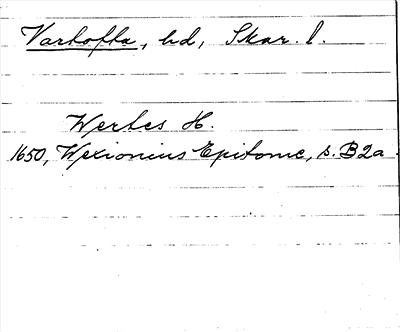 Vartofta, hd, Skar. l.
Wertes H.
1650, Wexionius Epitome, s. B2a